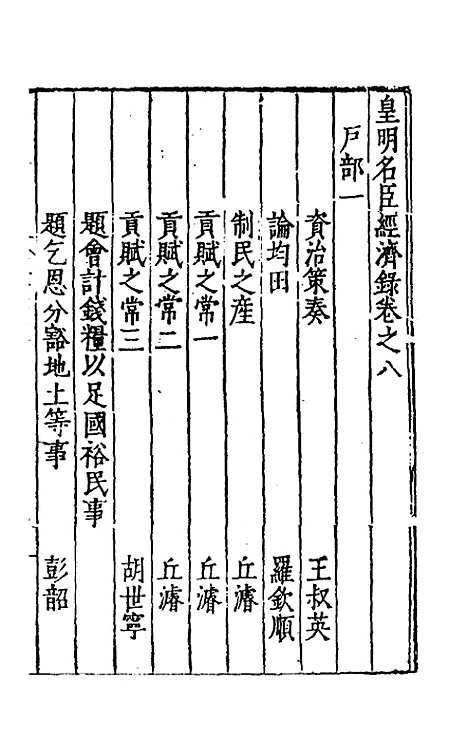 皇明名臣經濟錄卷之八
戶部一
資治策奏 王叔英
論均田 羅欽順
制民之產 丘濬
貢賦之常一 丘濬
貢賦之常二 丘濬
貢賦之常三 胡世寧
題會計錢糧以足國裕民事
題乞恩分豁地土等事 彭韶